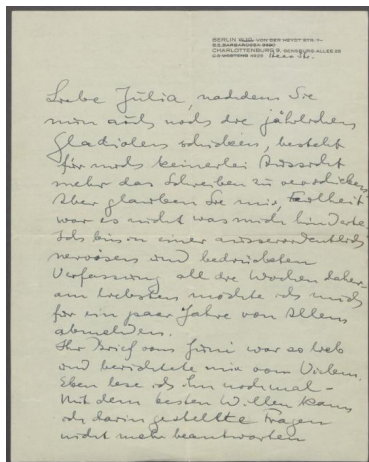 BERLIN W.10. VON DER HEYDT STR. 1
B.5. BARBAROSSA 9080
CHARLOTTENBURG 9, SENSBURG-ALLEE
C.9 WESTEND
Liebe Julia, nachdem Sie
nun auch noch die jährlichen
Gladiolen schicken, besteht
für mich keinerlei Aussicht
mehr das Schreiben zu verschieben
Aber glauben Sie mir, Faulheit
war es nicht was mich hinderte.
Ich bin in einer ausserordentlich
nervösen und bedrückten
Verfassung all die Wochen daher-
am liebsten möchte ich mich
für ein paar Jahre von Allem
abmelden.
Ihr Brief vom Juni war so lieb
und berichtete mir vom Vielem.
Eben lese ich ihn nochmal -
Mit dem besten Willen kann
ich darin gestellte Fragen
nicht mehr beantworten